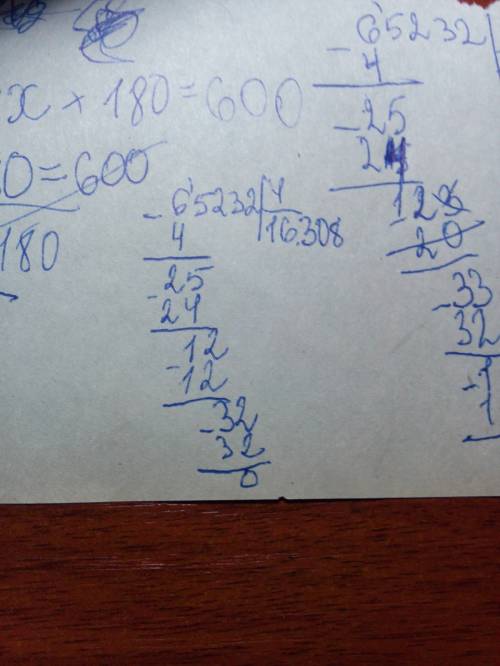 x + 180 = 600
0 = 600
180
- 65232 | 4
4 | 16308
- 25
24
- 12
- 12
- 32
32
0
65232
- 4
- 25
24
12
- 20
- 33
32
- 1
1